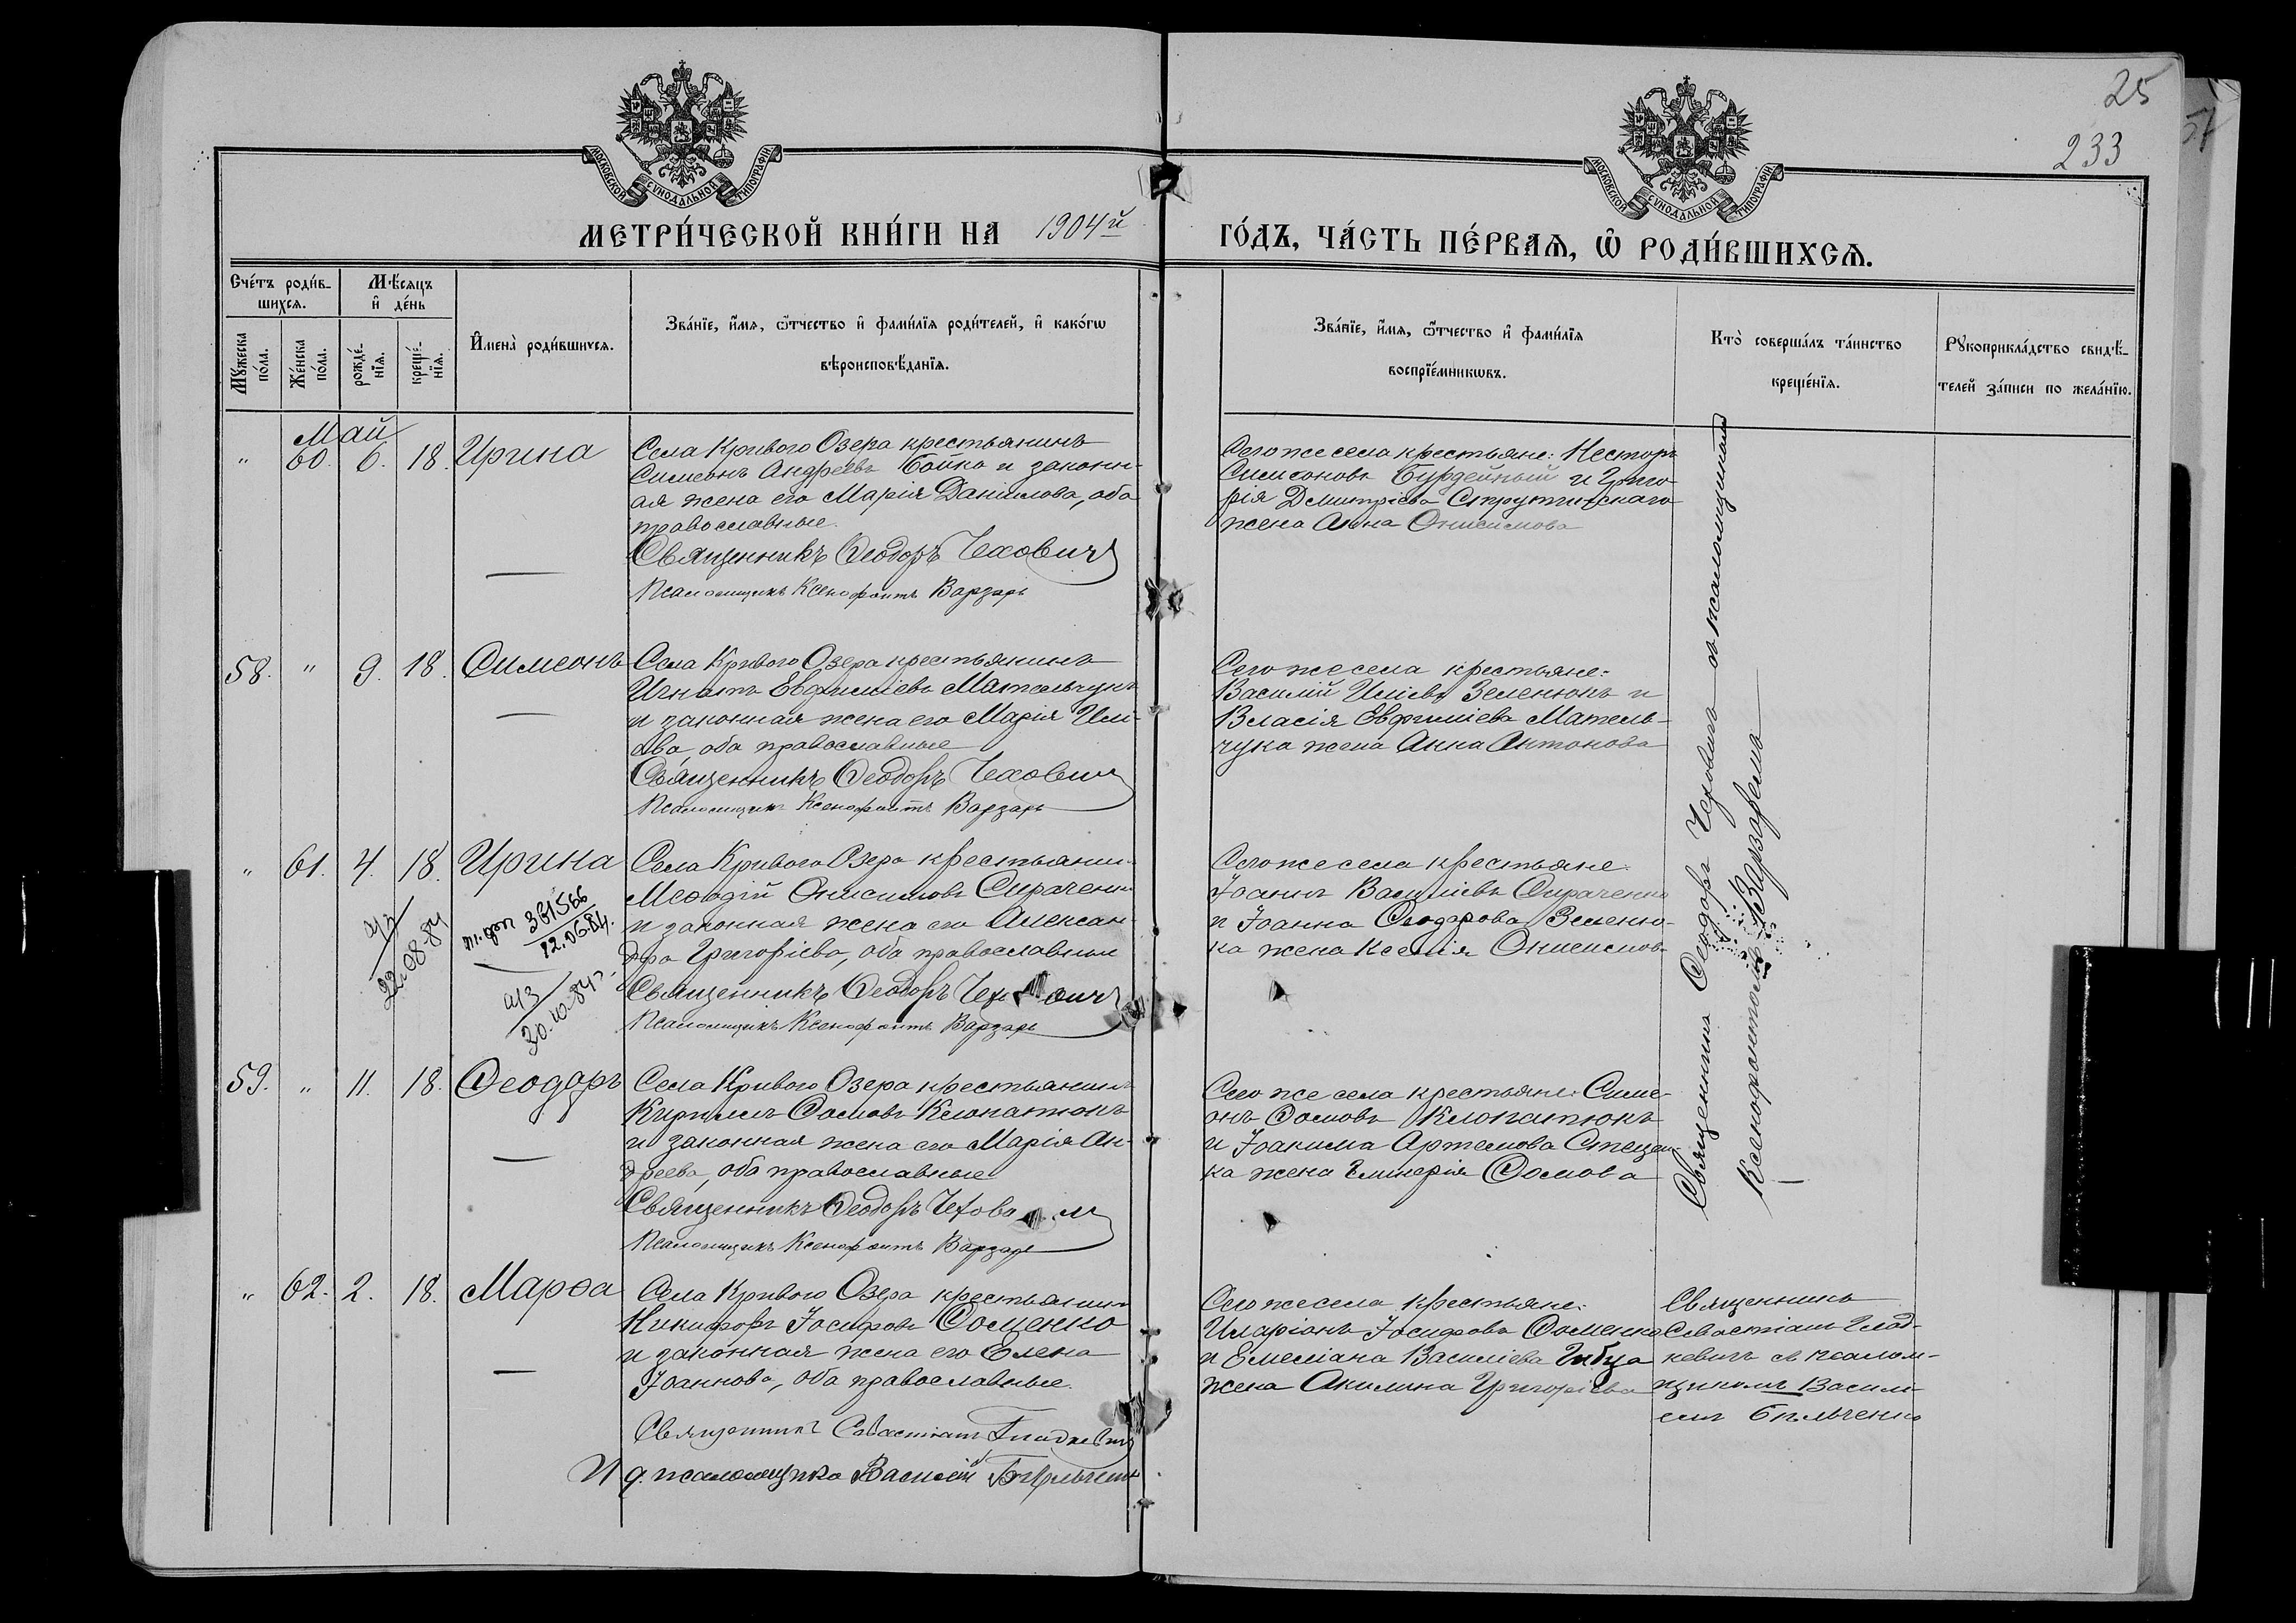 25
57
233
МОСКОВСКОЙ СѴНОДАЛЬНОЙ ТИПОГРАФІИ
МОСКОВСКОЙ СѴНОДАЛЬНОЙ ТИПОГРАФІИ
МЕТРИ́ЧЕСКОЙ КНИ́ГИ НА 1904й ГО́ДЪ, ЧА́СТЬ ПЕ́РВАѦ, Ѡ РОДИ́ВШИХСѦ.
Сче́тъ роди́в-
шихсѧ.
Мѣ́сѧцъ
и҆ де́нь
Мꙋ́жеска
по́ла.
Же́нска
по́ла.
рожде́-
нїѧ.
креще́-
нїѧ.
И҆мена̀ роди́вшихсѧ.
Зва́нїе, и҆́мѧ, ѻ҆́тчество и҆ фами́лїѧ роди́телей, и҆ како́гѡ
вѣроисповѣ́данїѧ.
Зва́нїе, и҆́мѧ, ѻ҆́тчество и҆ фами́лїѧ
воспрїе́мникѡвъ.
Кто̀ соверша́лъ та́инство
креще́нїѧ.
Рꙋкоприкла́дство свидѣ́-
телей за́писи по жела́нїю.
Май
" 60. 6. 18. Ирина
Села Кривого Озера крестьянинъ
Симеонъ Андреевъ Бойко и законн-
ая жена его Марія Даніилова, оба
православные.
Священникъ Ѳеодоръ Чеховичъ
Псаломщикъ Ксенофонтъ Варзарь
Сего же села крестьяне: Несторъ
Симеоновъ Бурдейный и Григо-
рія Дмитріева Струтинскаго
жена Анна Онисимова
58. " 9. 18. Симеонъ
Села Кривого Озера крестьянинъ
Игнатъ Евфиміевъ Мательчукъ
и законная жена его Марія Илі-
ева, оба православные
Священникъ Ѳеодоръ Чеховичъ
Псаломщикъ Ксенофонтъ Варзарь
Сего же села крестьяне:
Василій Иліевъ Зеленюкъ и
Власія Евфиміева Матель-
чука жена Анна Антонова
" 61. 4. 18. Ирина
22.08.84
361566
12.06.84.
30.10.84 г.
Села Кривого Озера крестьянинъ
Меѳодій Онисимовъ Сираченко
и законная жена его Алексан-
дра Григоріева, оба православные
Священникъ Ѳеодоръ Чеховичъ
Псаломщикъ Ксенофонтъ Варзарь
Сего же села крестьяне
Іоаннъ Василіевъ Сираченко
и Іоанна Ѳеодорова Зеленю-
ка жена Ксенія Онисимова
59. " 11. 18. Ѳеодоръ
Села Кривого Озера крестьянинъ
Кириллъ Ѳомовъ Клопатюкъ
и законная жена его Марія Ан-
дреева, оба православные
Священникъ Ѳеодоръ Чеховичъ
Псаломщикъ Ксенофонтъ Варзарь
Сего же села крестьяне: Симе-
онъ Ѳомовъ Клопатюкъ
и Іоакима Артемова Стецен-
ка жена Гликерія Ѳомова
Священникъ Ѳеодоръ Чеховичъ съ псаломщикомъ
Ксенофонтомъ Варзаремъ
" 62. 2. 18. Марѳа
Села Кривого Озера крестьянинъ
Никифоръ Іосифовъ Ѳоменко
и законная жена его Елена
Іоаннова, оба православные.
Священникъ Севастіанъ Гладкевичъ
И. д. псаломщика Василій Бѣльченко
Сего же села крестьяне:
Иларіонъ Іосифовъ Ѳоменко
и Емеліана Василіева
жена Акилина Григоріева
Священникъ
Севастіанъ Глад-
кевичъ съ псалом-
щикомъ Васили-
емъ Бѣльченко